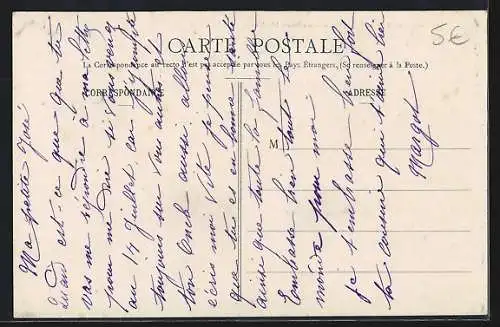 CARTE POSTALE
La Correspondance au recto n'est pas acceptée par tous les Pays Étrangers. (Se renseigner à la Poste.)
CORRESPONDANCE
ADRESSE
M
5€
Ma petite
Quand est-ce que que tu
vas me répondre à ma lettre
pour me dire si vous venez
au 14 Juillet car j'y compte
toujours sur vous autres et
ton Oncle aussi allons
écris moi vite je pense
que tu es en bonne santé
ainsi que toute la famille
Embrasse bien tout le
monde pour moi
je t'embrasse bien fort
ta cousine qui t'aime bien
Margot